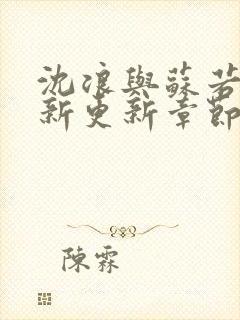 沈浪與蘇若
新更新章節
陳霖